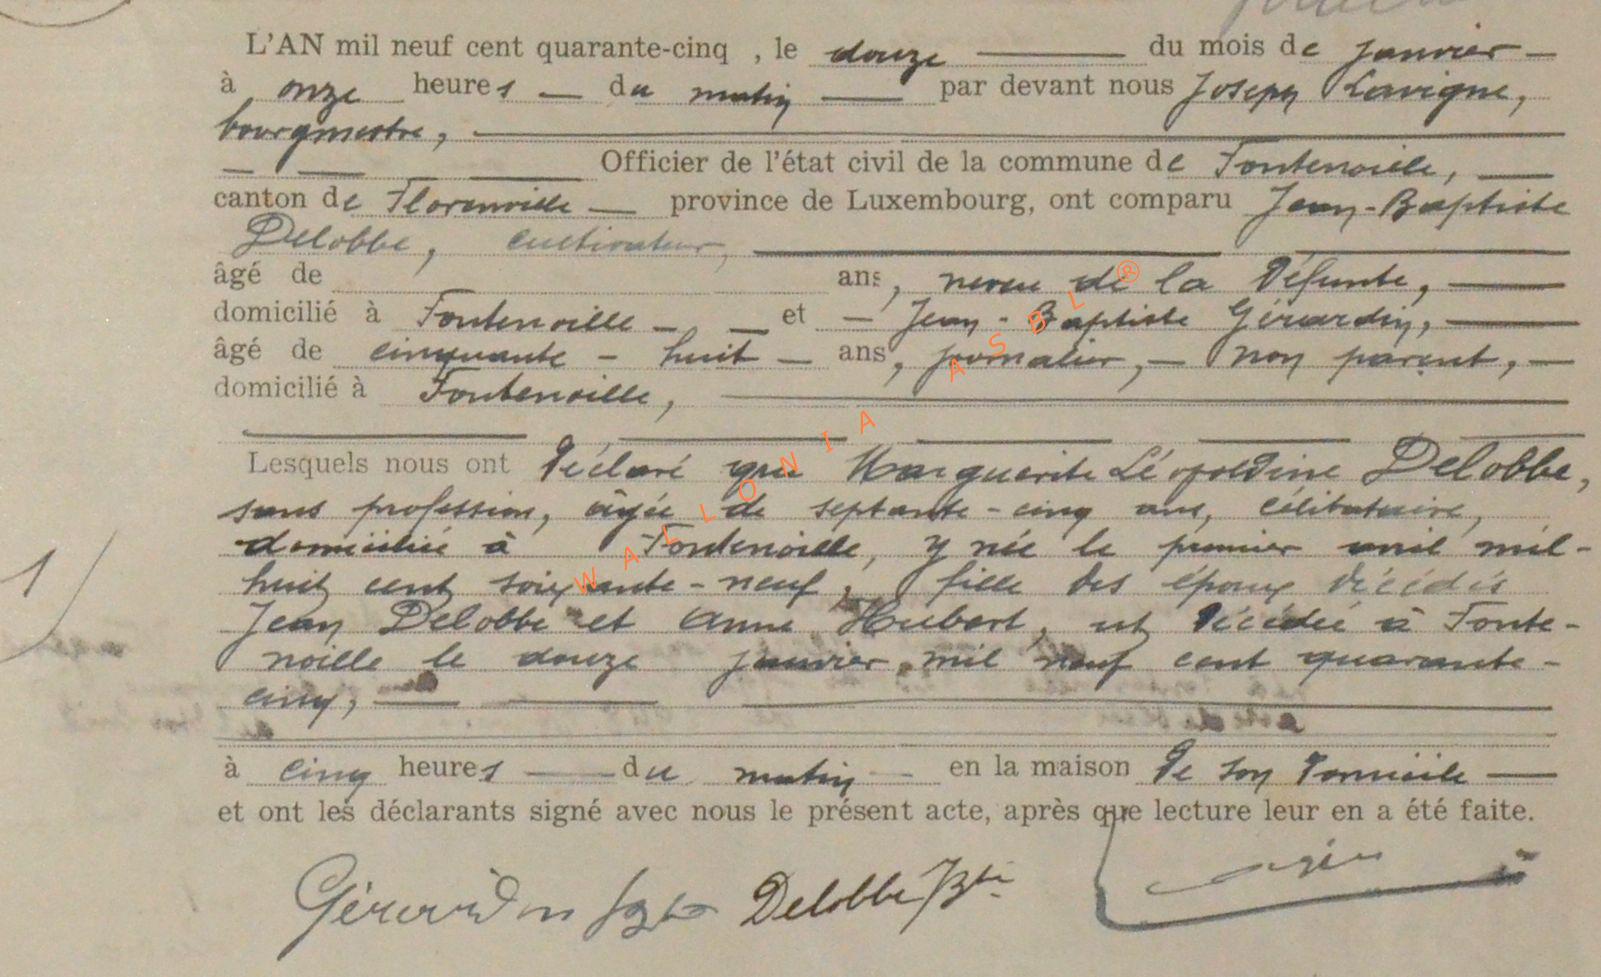 L'AN mil neuf cent quarante-cinq , le douze du mois de janvier
à onze heures du matin par devant nous Joseph Lavigne,
bourgmestre,
Officier de l'état civil de la commune de Fontenoille,
canton de Florenville province de Luxembourg, ont comparu Jean-Baptiste
Delobbe, cultivateur,
âgé de ans, neveu de la défunte,
domicilié à Fontenoille et Jean-Baptiste Gérardin,
âgé de cinquante-huit ans, journalier, non parent,
domicilié à Fontenoille,
Lesquels nous ont déclaré que Marguerite Léopoldine Delobbe,
sans profession, âgée de septante-cinq ans, célibataire,
domiciliée à Fontenoille, y née le premier avril mil-
huit cent soixante-neuf, fille des époux décédés
Jean Delobbe et Anne Hubert, est décédée à Fonte-
noille le douze janvier mil neuf cent quarante-
cinq,
à cinq heures du matin en la maison de son domicile
et ont les déclarants signé avec nous le présent acte, après que lecture leur en a été faite.
Gérardin Delobbe JBte
1
WALLONIA ASBL ®